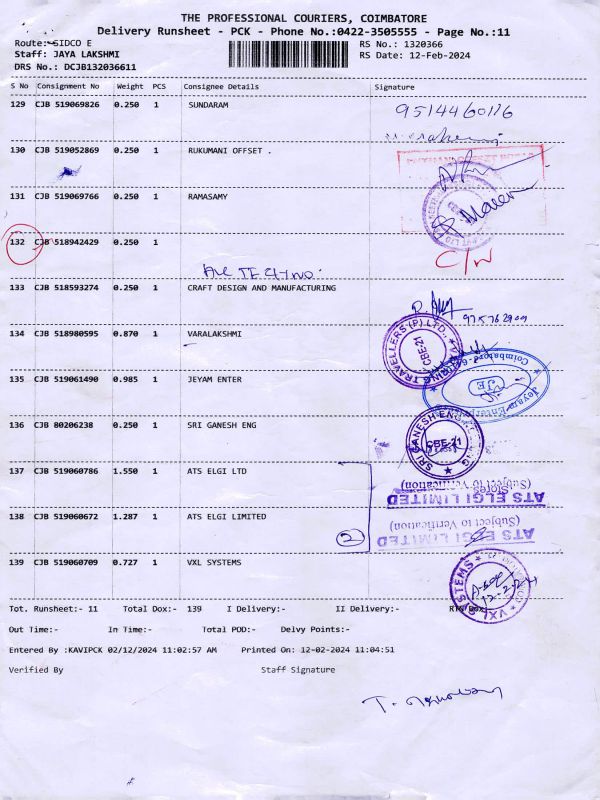 THE PROFESSIONAL COURIERS, COIMBATORE
Delivery Runsheet - PCK - Phone No.:0422-3505555 - Page No.:11
Route: SIDCO E
RS No.: 1320366
Staff: JAYA LAKSHMI
RS Date: 12-Feb-2024
DRS No.: DCJB132036611
S No Consignment No Weight PCS Consignee Details Signature
129 CJB 519069826 0.250 1 SUNDARAM
130 CJB 519052869 0.250 1 RUKUMANI OFFSET .
131 CJB 519069766 0.250 1 RAMASAMY
132 CJB 518942429 0.250 1
C/N
133 CJB 518593274 0.250 1 CRAFT DESIGN AND MANUFACTURING
134 CJB 518980595 0.870 1 VARALAKSHMI
TRAVELLERS (P) LTD.,
CBE-21
135 CJB 519061490 0.985 1 JEYAM ENTER
Jeyam Enter
JE
Coimbatore-
136 CJB 80206238 0.250 1 SRI GANESH ENG
SRI GANESH ENG
CBE-21
137 CJB 519060786 1.550 1 ATS ELGI LTD
Stores
(Subject to Verification)
ATS ELGI LIMITED
138 CJB 519060672 1.287 1 ATS ELGI LIMITED
2
(Subject to Verification)
ATS ELGI LIMITED
139 CJB 519060709 0.727 1 VXL SYSTEMS
VXL SYSTEMS
12-2-24
Tot. Runsheet:- 11 Total Dox:- 139 I Delivery:- II Delivery:- RTN Dox:
Out Time:- In Time:- Total POD:- Delvy Points:-
Entered By :KAVIPCK 02/12/2024 11:02:57 AM Printed On: 12-02-2024 11:04:51
Verified By Staff Signature